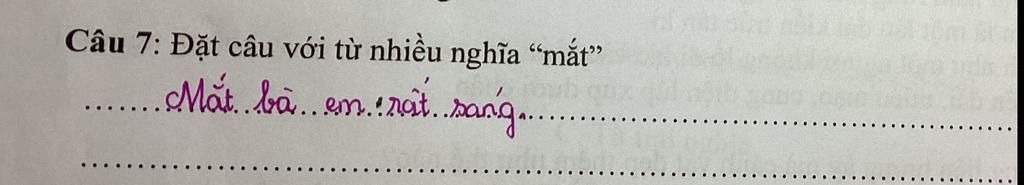 Câu 7: Đặt câu với từ nhiều nghĩa “mắt”
Mắt bà em rất sáng.